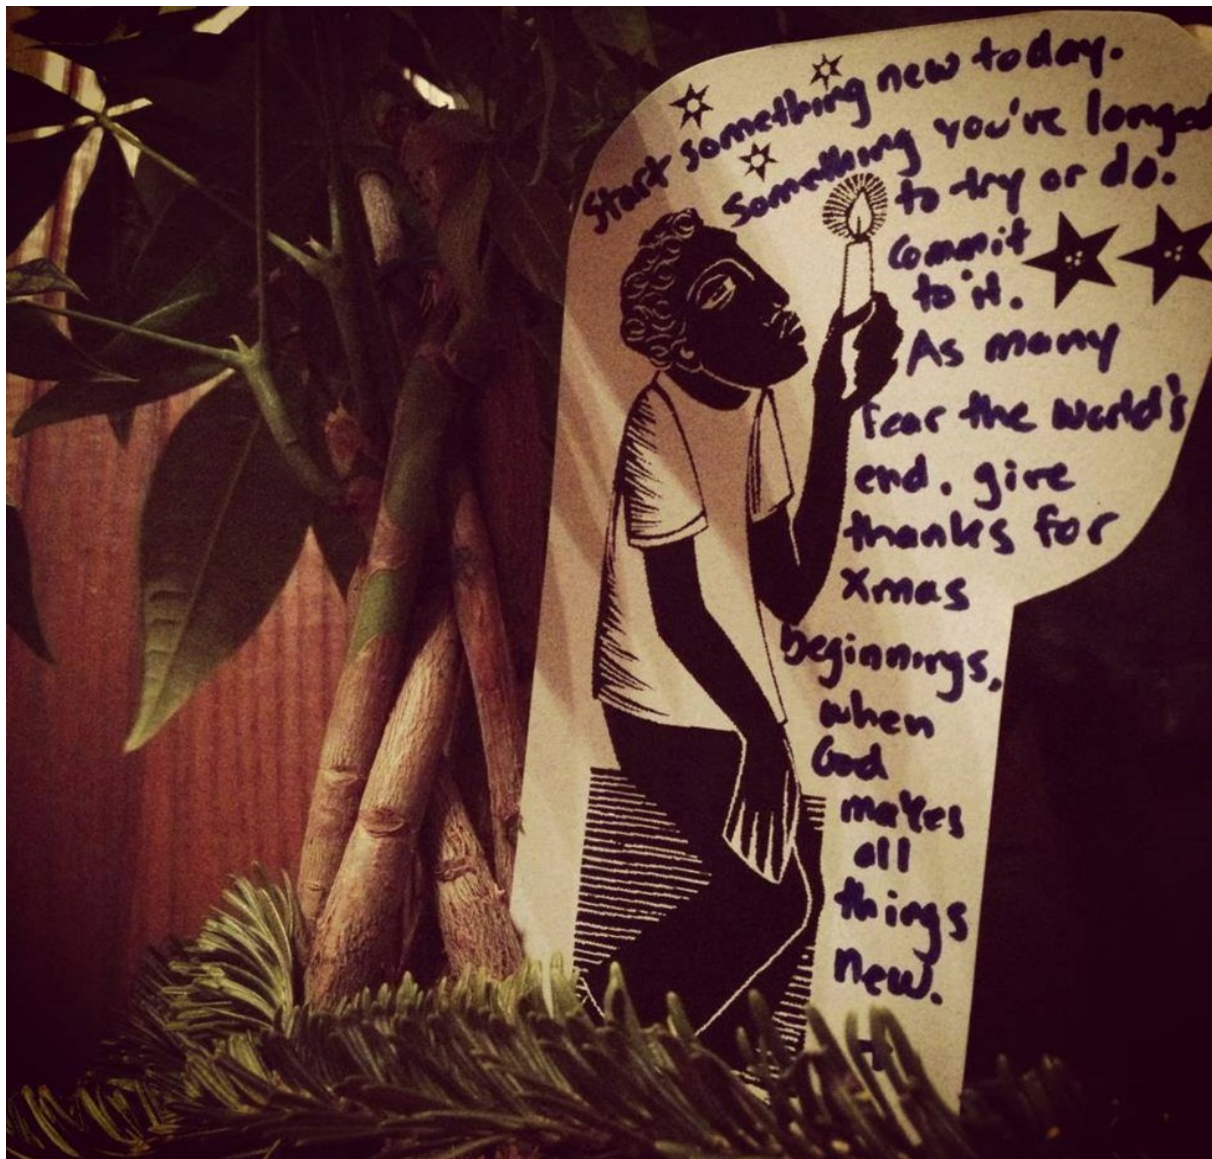 Start something new today.
something you've longed
to try or do.
Commit
to it.
As many
fear the world's
end, give
thanks for
Xmas
beginnings,
when
God
makes
all
things
new.